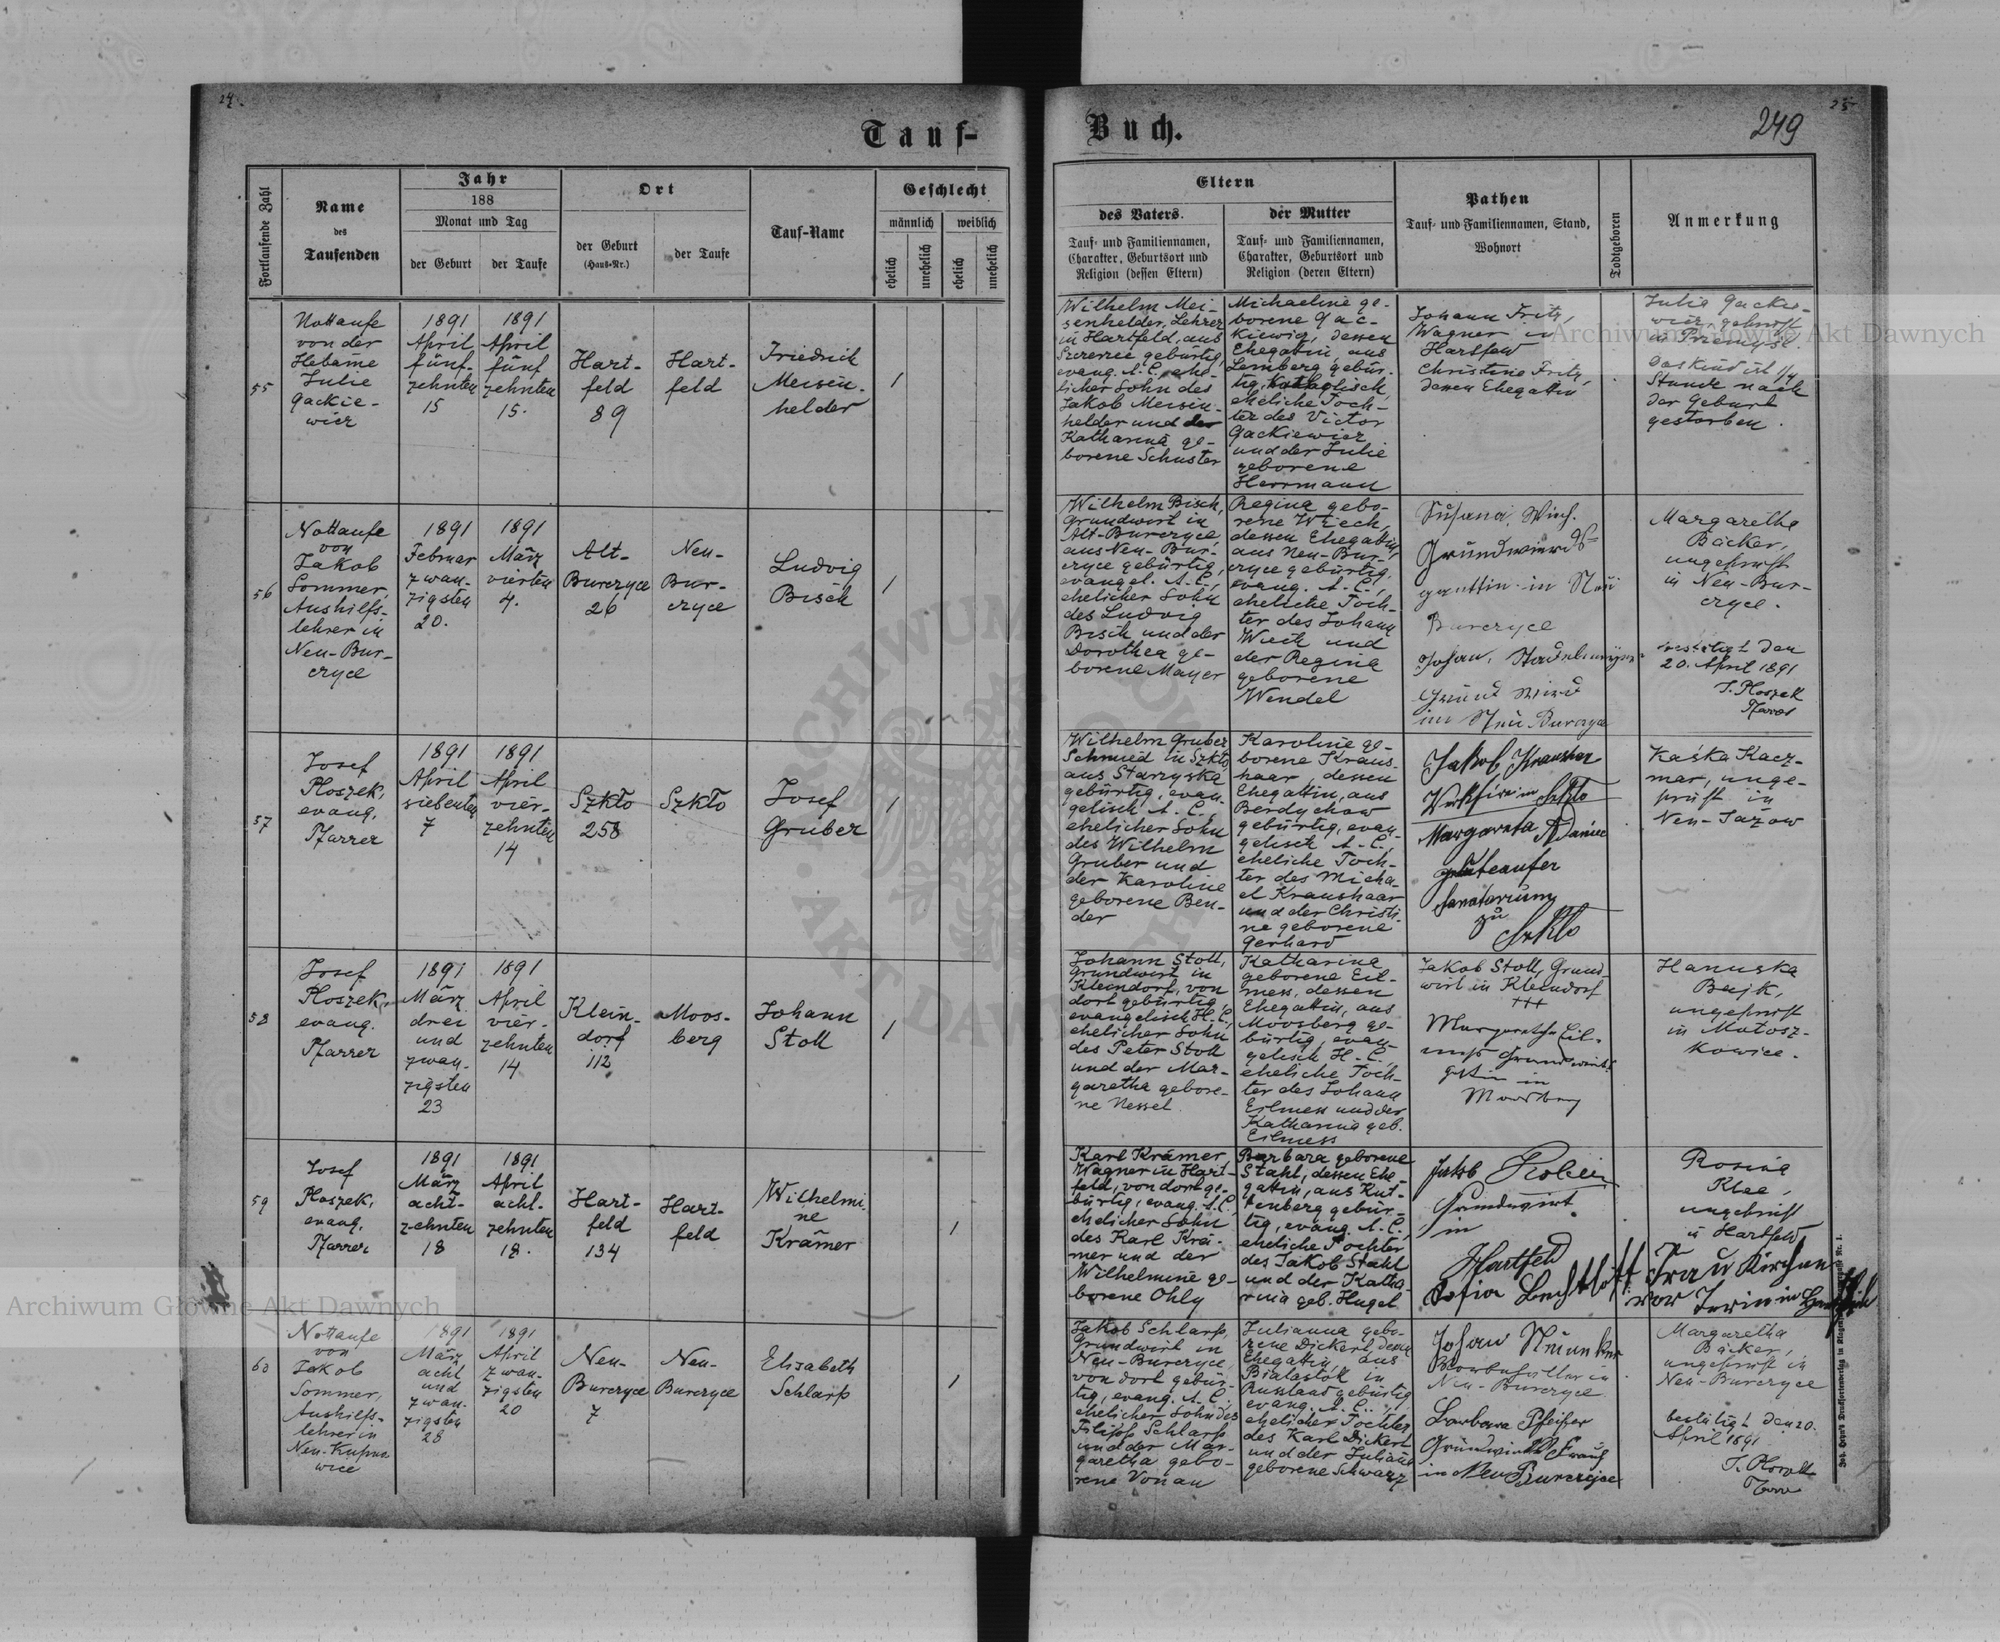 24.
25
249
Tauf-
Buch.
Fortlaufende Zahl
Name
des
Taufenden
Jahr
188
Monat und Tag
der Geburt
der Taufe
Ort
der Geburt
(Haus-Nr.)
der Taufe
Tauf-Name
Geschlecht
männlich
weiblich
ehelich
unehelich
ehelich
unehelich
Eltern
des Vaters.
Tauf- und Familiennamen,
Charakter, Geburtsort und
Religion (dessen Eltern)
der Mutter
Tauf- und Familiennamen,
Charakter, Geburtsort und
Religion (deren Eltern)
Pathen
Tauf- und Familiennamen, Stand,
Wohnort
Todtgeboren
Anmerkung
55
Nottaufe
von der
Hebame
Julie
Gackie-
wicz
1891
April
fünf-
zehnten
15
1891
April
fünf
zehnten
15.
Hart-
feld
89
Hart-
feld
Friedrich
Meisen-
helder
1
Wilhelm Mei-
senhelder, Lehrer
in Hartfeld, aus
gebürtig,
evang. A. C., ehe-
licher Sohn des
Jakob Meisen-
helder und der
Katharina ge-
borene Schuster
Michaeline ge-
borene Gac-
kiewicz, dessen
Ehegattin, aus
Lemberg gebür-
tig, katholisch,
eheliche Toch-
ter des Victor
Gackiewicz
und der Julie
geborene
Herrmann
Johann Fritz,
Wagner in
Hartfeld
Christine Fritz,
deren Ehegattin
Julie Gackie-
wicz, geprüft
in Przemyśl.
Das Kind ist 1/4
Stunde nach
der Geburt
gestorben.
56
Nottaufe
von
Jakob
Sommer,
Aushilfs-
lehrer in
Neu-Bur-
czyce
1891
Februar
zwan-
zigsten
20.
1891
März
vierten
4.
Alt-
Burczyce
26
Neu-
Bur-
czyce
Ludvig
Bisch
1
Wilhelm Bisch,
Grundwirt in
Alt-Burczyce,
aus Neu-Bur-
czyce gebürtig,
evangel. A. C.,
ehelicher Sohn
des Ludvig
Bisch und der
Dorothea ge-
borene Mayer
Regina gebo-
rene Wiech,
dessen Ehegattin,
aus Neu-Bur-
czyce gebürtig,
evang. A. C.,
eheliche Toch-
ter des Johann
Wiech und
der Regina
geborene
Wendel
Susana, Wiech.
in Neu
Burczyce
Johan,
Grund Wird
im Neu Burczyce
Margaretha
Bäcker,
ungeprüft
in Neu-Bur-
czyce.
bestätigt den
20. April 1891
J. Ploszek
Pfarrer
57
Josef
Ploszek,
evang.
Pfarrer
1891
April
siebenten
7
1891
April
vier-
zehnten
14
Szkło
258
Szkło
Josef
Gruber
1
Wilhelm Gruber
Schmied in Szkło
aus Starzyska
gebürtig, evan-
gelisch A. C.,
ehelicher Sohn
des Wilhelm
Gruber und
der Karoline
geborene Ben-
der
Karoline ge-
borene Kraus-
haar, dessen
Ehegattin, aus
Berdychow
gebürtig, evan-
gelisch A. C.,
eheliche Toch-
ter des Micha-
el Kraushaar
und der Christi-
ne geborene
Gerhard
Jakob Kraushar
in Szkło
Margareta
Sanatorium
zu
Szkło
Kaśka Kacz-
mar, unge-
prüft in
Neu-Jazow
58
Josef
Ploszek,
evang.
Pfarrer
1891
März
drei
und
zwan-
zigsten
23
1891
April
vier-
zehnten
14
Klein-
dorf
112
Moos-
berg
Johann
Stoll
1
Johann Stoll,
Grundwirt in
Kleindorf, von
dort gebürtig,
evangelisch H. C.,
ehelicher Sohn
des Peter Stoll
und der Mar-
garetha gebore-
ne Nessel
Katharina
geborene Eil-
mess, dessen
Ehegattin, aus
Moosberg ge-
bürtig, evan-
gelisch H. C.,
eheliche Toch-
ter des Johann
Eilmess und der
Katharina geb.
Eilmess
Jakob Stoll, Grund-
wirt in Kleindorf
+++
Margaretha Eil-
in
Moosberg
Hanuska
Bujk,
ungeprüft
in Mołosz-
kowice.
59
Josef
Ploszek,
evang.
Pfarrer
1891
März
acht-
zehnten
18
1891
April
acht-
zehnten
18.
Hart-
feld
134
Hart-
feld
Wilhelmi-
ne
Krämer
1
Karl Krämer,
Wagner in Hart-
feld, von dort ge-
bürtig, evang. A. C.,
ehelicher Sohn
des Karl Krä-
mer und der
Wilhelmine ge-
borene Ohly
Barbara geborene
Stahl, dessen Ehe-
gattin, aus Kut-
tenberg gebür-
tig, evang. A. C.,
eheliche Tochter
des Jakob Stahl
und der Katha-
rina geb. Hugel
Jakob
Grundwirt
in
Hartfeld
Sofia Bechtloff
Frau Kirchen
vor
Rosina
Klee,
ungeprüft
in Hartfeld
60
Nottaufe
von
Jakob
Sommer,
Aushilfs-
lehrer in
Neu-Kupno-
wice
1891
März
acht
und
zwan-
zigsten
28
1891
April
zwan-
zigsten
20
Neu-
Burczyce
7
Neu-
Burczyce
Elisabeth
Schlarp
1
Jakob Schlarp,
Grundwirt in
Neu-Burczyce,
von dort gebür-
tig, evang. A. C.,
ehelicher Sohn des
Filipp Schlarp
und der Mar-
garetha gebo-
rene Vonau
Julianna gebo-
rene Dickert, dessen
Ehegattin, aus
Bialastok in
Russland gebürtig
evang. A. C.,
ehelicher Tochter
des Karl Dickert
und der Juliane
geborene Schwarz
Johan
in
Neu-Burczyce
Barbara Pfeifer
Grundwirths Frau
in Neu Burczyce
Margaretha
Bäcker,
ungeprüft in
Neu-Burczyce
bestätigt den 20.
April 1891
J. Ploszek
Pfarrer
Archiwum Główne Akt Dawnych
Archiwum Główne Akt Dawnych